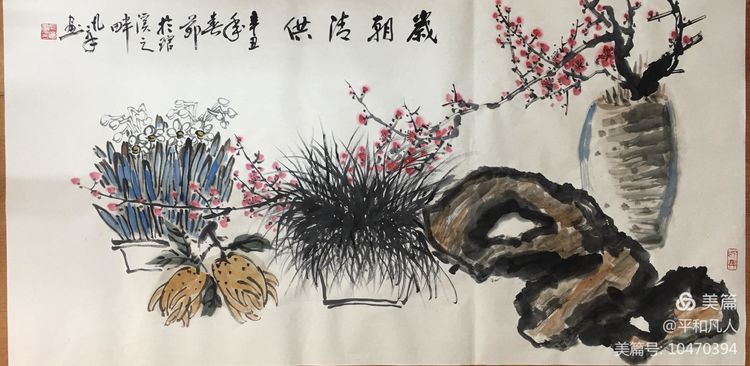 歲朝清供
辛丑
年春節
於琯
溪之
畔
畫
美篇
@平和凡人
美篇号: 10470394